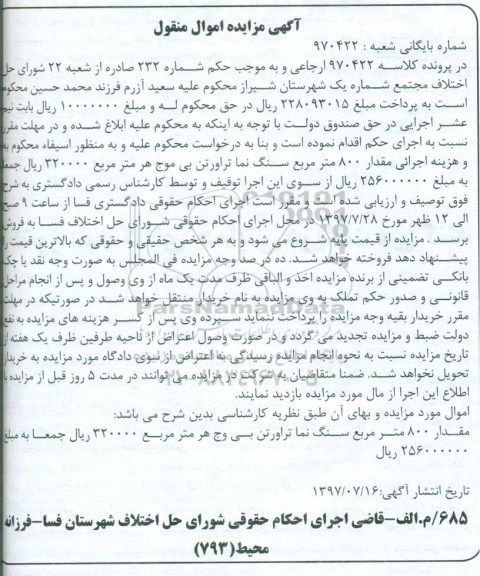 آگهی مزایده اموال منقول
شماره بایگانی شعبه : ۹۷۰۴۲۲
در پرونده کلاسه ۹۷۰۴۲۲ ارجاعی و به موجب حکم شماره ۲۳۲ صادره از شعبه ۲۲ شورای حل
اختلاف مجتمع شماره یک شهرستان شیراز محکوم علیه سعید آزرم فرزند محمد حسین محکوم
است به پرداخت مبلغ ۲۲۸۰۹۳۰۱۵ ریال در حق محکوم له و مبلغ ۱۰۰۰۰۰۰۰ ریال بابت نیم
عشر اجرایی در حق صندوق دولت با توجه به اینکه به محکوم علیه ابلاغ شده و در مهلت مقرر
نسبت به اجرای حکم اقدام ننموده است و بنا به درخواست محکوم علیه و به منظور اسیفاء محکوم به
و هزینه اجرائی مقدار ۸۰۰ متر مربع سنگ نما تراورتن بی موج هر متر مربع ۳۲۰۰۰۰ ریال جمعا
به مبلغ ۲۵۶۰۰۰۰۰۰ ریال از سوی این اجرا توقیف و توسط کارشناس رسمی دادگستری به شرح
فوق توصیف و ارزیابی شده است و مقرر است اجرای احکام حقوقی دادگستری فسا از ساعت ۹ صبح
الی ۱۲ ظهر مورخ ۱۳۹۷/۷/۲۸ در محل اجرای احکام حقوقی شورای حل اختلاف فسا به فروش
برسد . مزایده از قیمت پایه شروع می شود و به هر شخص حقیقی و حقوقی که بالاترین قیمت را
پیشنهاد دهد فروخته خواهد شد. ده در صد وجه مزایده فی المجلس به صورت وجه نقد یا چک
بانکی تضمینی از برنده مزایده اخذ و الباقی ظرف مدت یک ماه از وی وصول و پس از انجام مراحل
قانونی و صدور حکم تملک به وی مزایده به نام خریدار منتقل خواهد شد در صورتیکه در مهلت
مقرر خریدار بقیه وجه مزایده را پرداخت ننماید سپرده وی پس از کسر هزینه های مزایده به نفع
دولت ضبط و مزایده تجدید می گردد و در صورت وصول اعتراض از ناحیه طرفین ظرف یک هفته از
تاریخ مزایده نسبت به نحوه انجام مزایده رسیدگی به اعتراض از سوی دادگاه مورد مزایده به خریدار
تحویل نخواهد شد. ضمنا متقاضیان به شرکت در مزایده می توانند در مدت ۵ روز قبل از مزایده با
اطلاع این اجرا از مال مورد مزایده بازدید نمایند.
اموال مورد مزایده و بهای آن طبق نظریه کارشناسی بدین شرح می باشد:
مقدار ۸۰۰ متر مربع سنگ نما تراورتن بی وج هر متر مربع ۳۲۰۰۰۰ ریال جمعا به مبلغ
۲۵۶۰۰۰۰۰۰ ریال
تاریخ انتشار آگهی:۱۳۹۷/۰۷/۱۶
۶۸۵/م.الف-قاضی اجرای احکام حقوقی شورای حل اختلاف شهرستان فسا-فرزانه
محیط(۷۹۳)
ParsNamadData